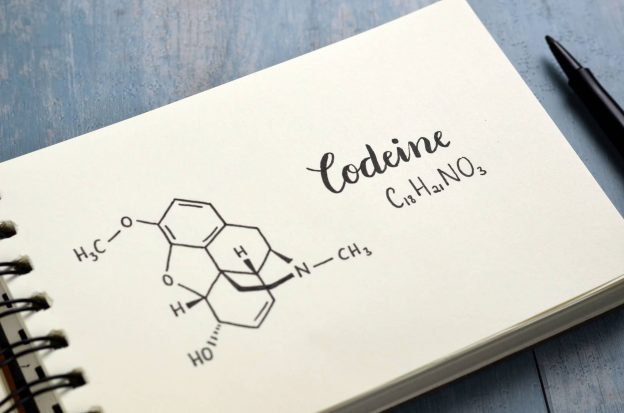 Codeine
C₁₈H₂₁NO₃
H₃C
O
O
H
H
N
CH₃
HO